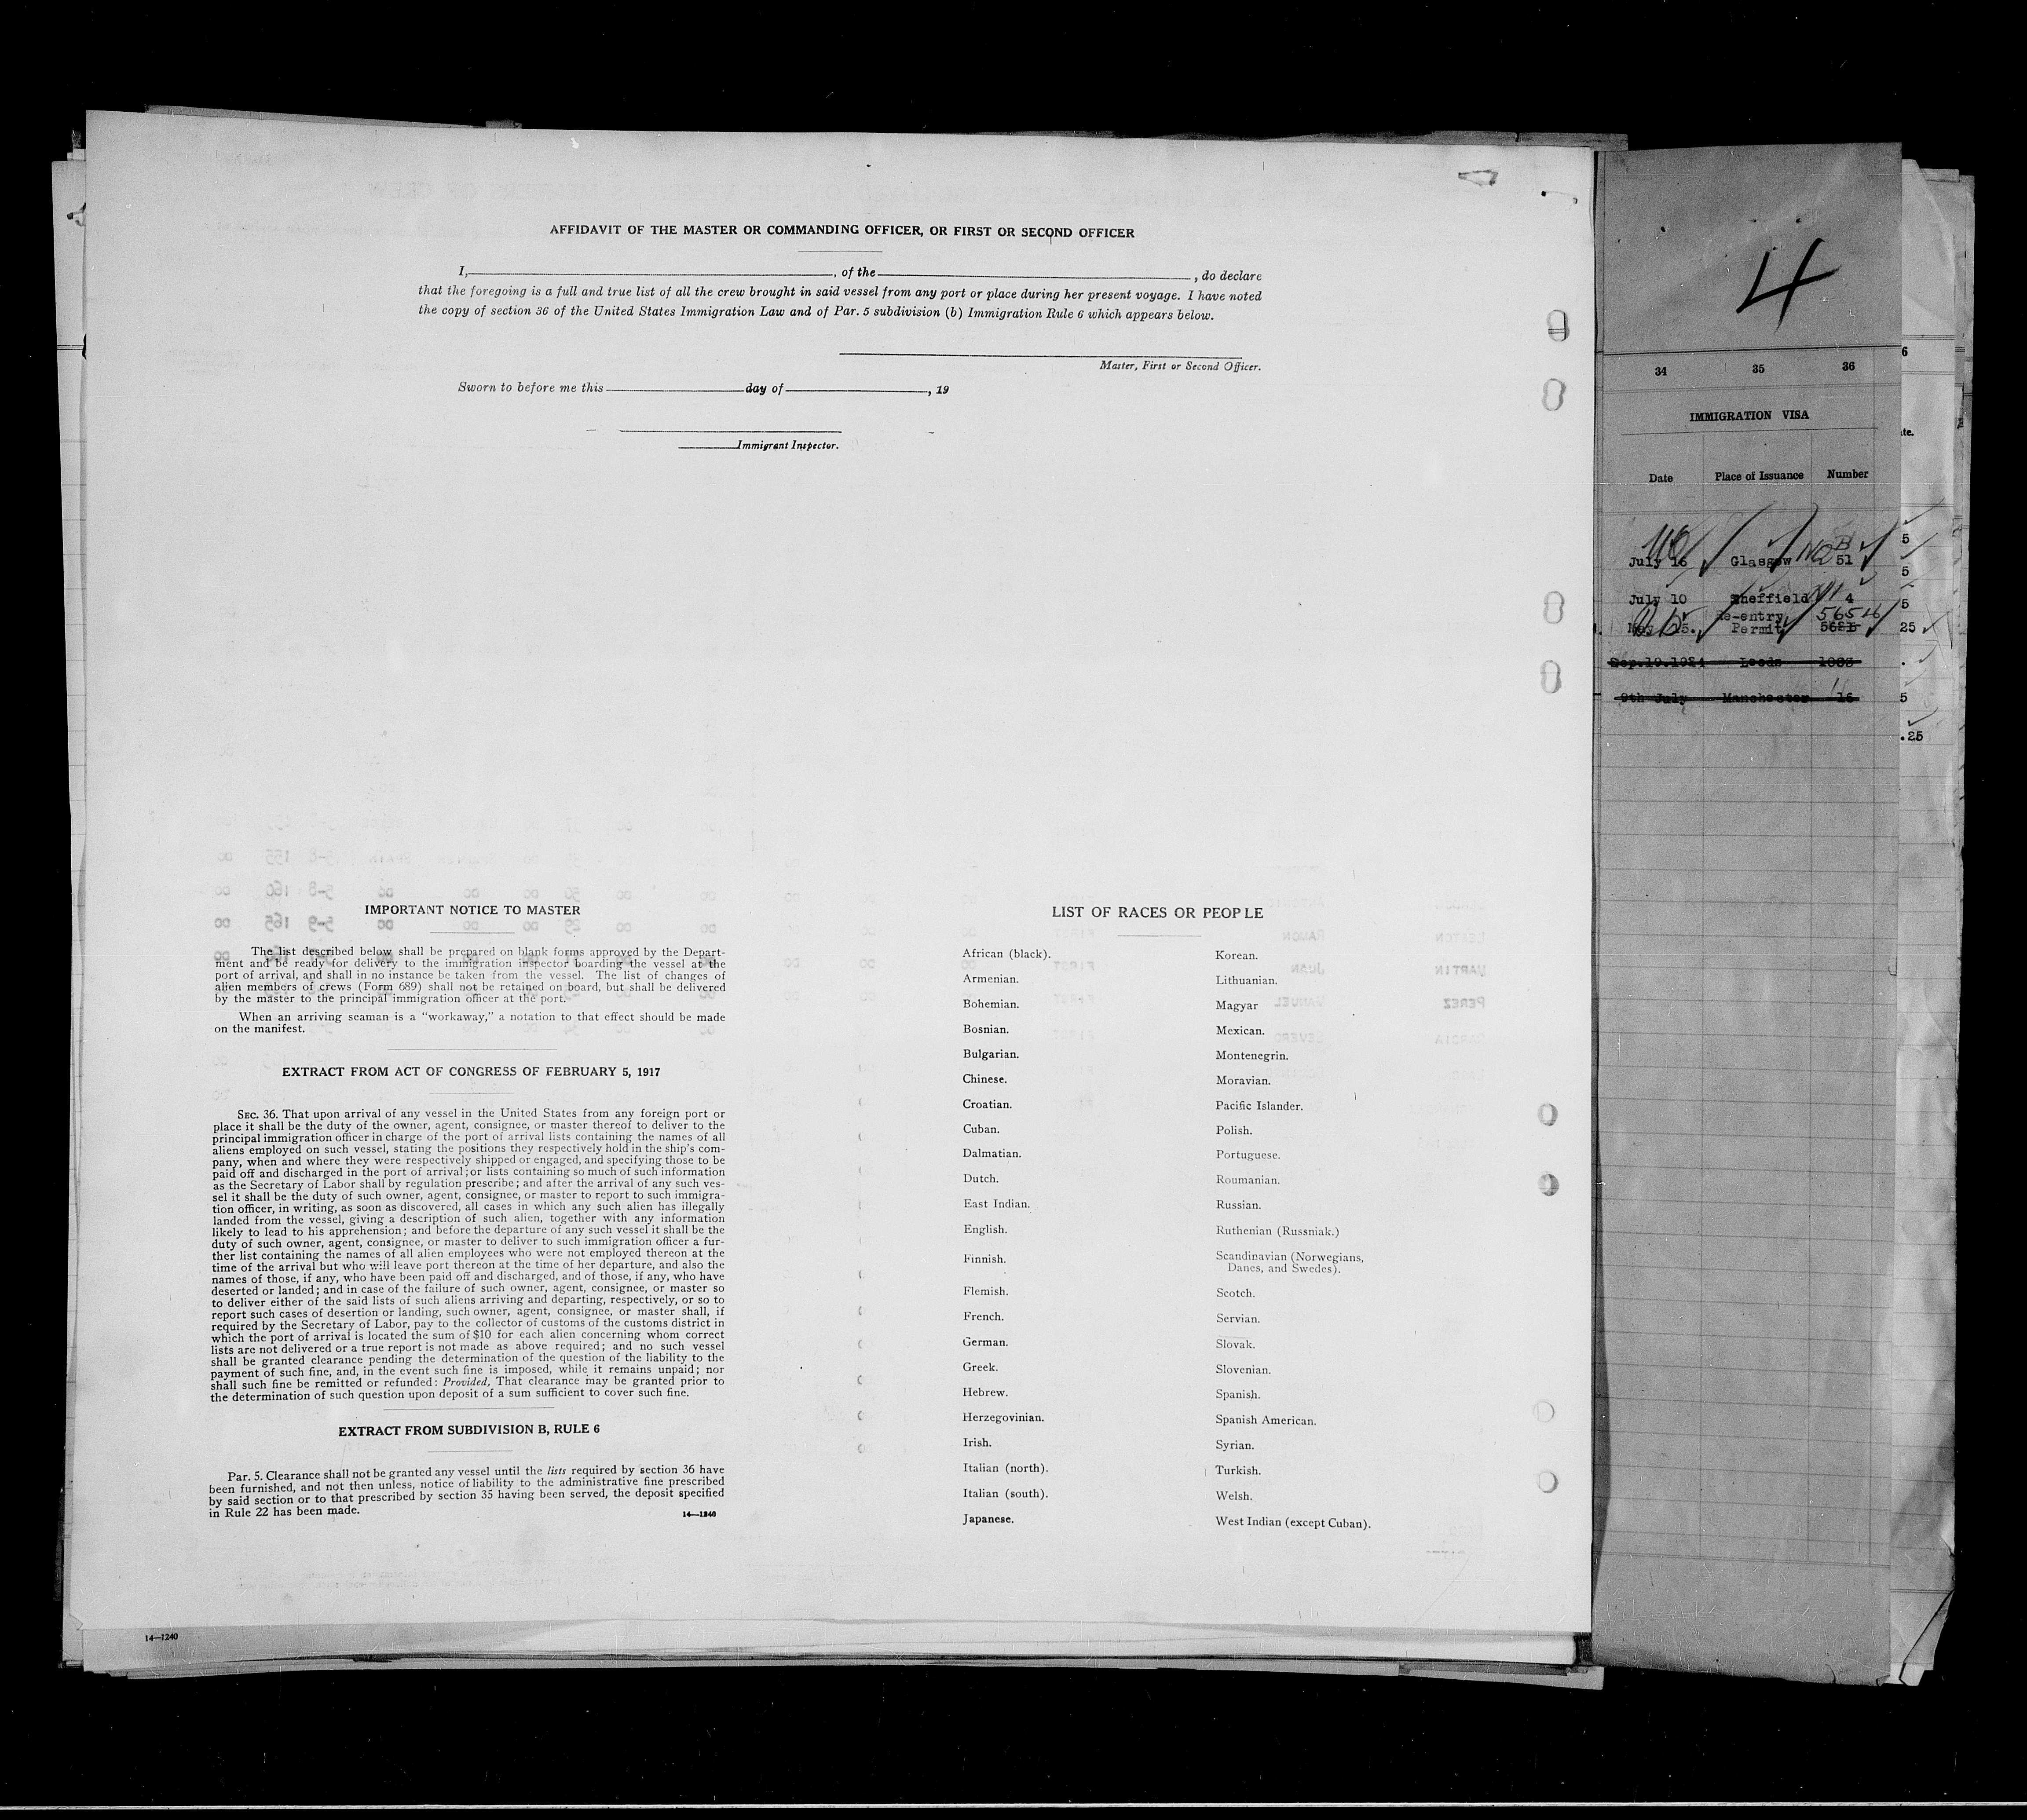 AFFIDAVIT OF THE MASTER OR COMMANDING OFFICER, OR FIRST OR SECOND OFFICER
I, , of the , do declare
that the foregoing is a full and true list of all the crew brought in said vessel from any port or place during her present voyage. I have noted
the copy of section 36 of the United States Immigration Law and of Par. 5 subdivision (b) Immigration Rule 6 which appears below.
Master, First or Second Officer.
Sworn to before me this day of , 19
Immigrant Inspector.
IMPORTANT NOTICE TO MASTER
The list described below shall be prepared on blank forms approved by the Depart-
ment and be ready for delivery to the immigration inspector boarding the vessel at the
port of arrival, and shall in no instance be taken from the vessel. The list of changes of
alien members of crews (Form 689) shall not be retained on board, but shall be delivered
by the master to the principal immigration officer at the port.
When an arriving seaman is a "workaway," a notation to that effect should be made
on the manifest.
EXTRACT FROM ACT OF CONGRESS OF FEBRUARY 5, 1917
SEC. 36. That upon arrival of any vessel in the United States from any foreign port or
place it shall be the duty of the owner, agent, consignee, or master thereof to deliver to the
principal immigration officer in charge of the port of arrival lists containing the names of all
aliens employed on such vessel, stating the positions they respectively hold in the ship's com-
pany, when and where they were respectively shipped or engaged, and specifying those to be
paid off and discharged in the port of arrival; or lists containing so much of such information
as the Secretary of Labor shall by regulation prescribe; and after the arrival of any such ves-
sel it shall be the duty of such owner, agent, consignee, or master to report to such immigra-
tion officer, in writing, as soon as discovered, all cases in which any such alien has illegally
landed from the vessel, giving a description of such alien, together with any information
likely to lead to his apprehension; and before the departure of any such vessel it shall be the
duty of such owner, agent, consignee, or master to deliver to such immigration officer a fur-
ther list containing the names of all alien employees who were not employed thereon at the
time of the arrival but who will leave port thereon at the time of her departure, and also the
names of those, if any, who have been paid off and discharged, and of those, if any, who have
deserted or landed; and in case of the failure of such owner, agent, consignee, or master so
to deliver either of the said lists of such aliens arriving and departing, respectively, or so to
report such cases of desertion or landing, such owner, agent, consignee, or master shall, if
required by the Secretary of Labor, pay to the collector of customs of the customs district in
which the port of arrival is located the sum of $10 for each alien concerning whom correct
lists are not delivered or a true report is not made as above required; and no such vessel
shall be granted clearance pending the determination of the question of the liability to the
payment of such fine, and, in the event such fine is imposed, while it remains unpaid; nor
shall such fine be remitted or refunded: Provided, That clearance may be granted prior to
the determination of such question upon deposit of a sum sufficient to cover such fine.
EXTRACT FROM SUBDIVISION B, RULE 6
Par. 5. Clearance shall not be granted any vessel until the lists required by section 36 have
been furnished, and not then unless, notice of liability to the administrative fine prescribed
by said section or to that prescribed by section 35 having been served, the deposit specified
in Rule 22 has been made.
14—1240
LIST OF RACES OR PEOPLE
African (black).
Armenian.
Bohemian.
Bosnian.
Bulgarian.
Chinese.
Croatian.
Cuban.
Dalmatian.
Dutch.
East Indian.
English.
Finnish.
Flemish.
French.
German.
Greek.
Hebrew.
Herzegovinian.
Irish.
Italian (north).
Italian (south).
Japanese.
Korean.
Lithuanian.
Magyar
Mexican.
Montenegrin.
Moravian.
Pacific Islander.
Polish.
Portuguese.
Roumanian.
Russian.
Ruthenian (Russniak.)
Scandinavian (Norwegians,
Danes, and Swedes).
Scotch.
Servian.
Slovak.
Slovenian.
Spanish.
Spanish American.
Syrian.
Turkish.
Welsh.
West Indian (except Cuban).
14—1240
4
34 35 36
IMMIGRATION VISA
Date Place of Issuance Number
July 16 Glasgow 51
July 10 Sheffield 4
Re-entry 56526
May 15. Permit
Sep.19.1924 Leeds
9th July Manchester 16
6
5
5
5
25
5
.25